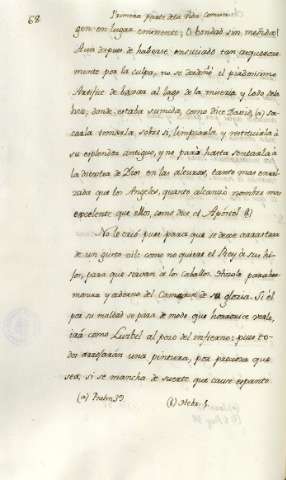 68. Primera parte dela Vida Comun
gen en lugar eminente; O bondad sin medida!
Aun despues de haberse ensuciado tan asquerosamente
mente por la culpa, no se desdeñó el piadosissimo
Artifice de baxar al lago de la miseria y lodo de la
hez, donde estaba sumida, como dice David, (a) sa-
carla tomarla sobre si, limpiarla y restituirla à
su esplendor antiguo, y no parar hasta sentarla à
la diestra de Dios en las alturas, tanto mas ensal-
zada que los Angeles, quanto alcanzó nombre mas
excelente que ellos, como dice el Apostol (b)
No le crió pues para que se dexe arrastrar
de un gusto vil: como no quiere el Rey à su hi-
jo, para que sirva de los caballos. Hizola para her-
mosura y adorno del Camarin de su gloria. Si él
por su maldad se para de modo que horrorice verle,
irá como Luzbel al pozo del infierno: pues to-
dos arrojarán una pintura, por preciosa que
sea, si se mancha de suerte que cause espanto.
(a) Psalm. 39. (b) Hebr. 1.